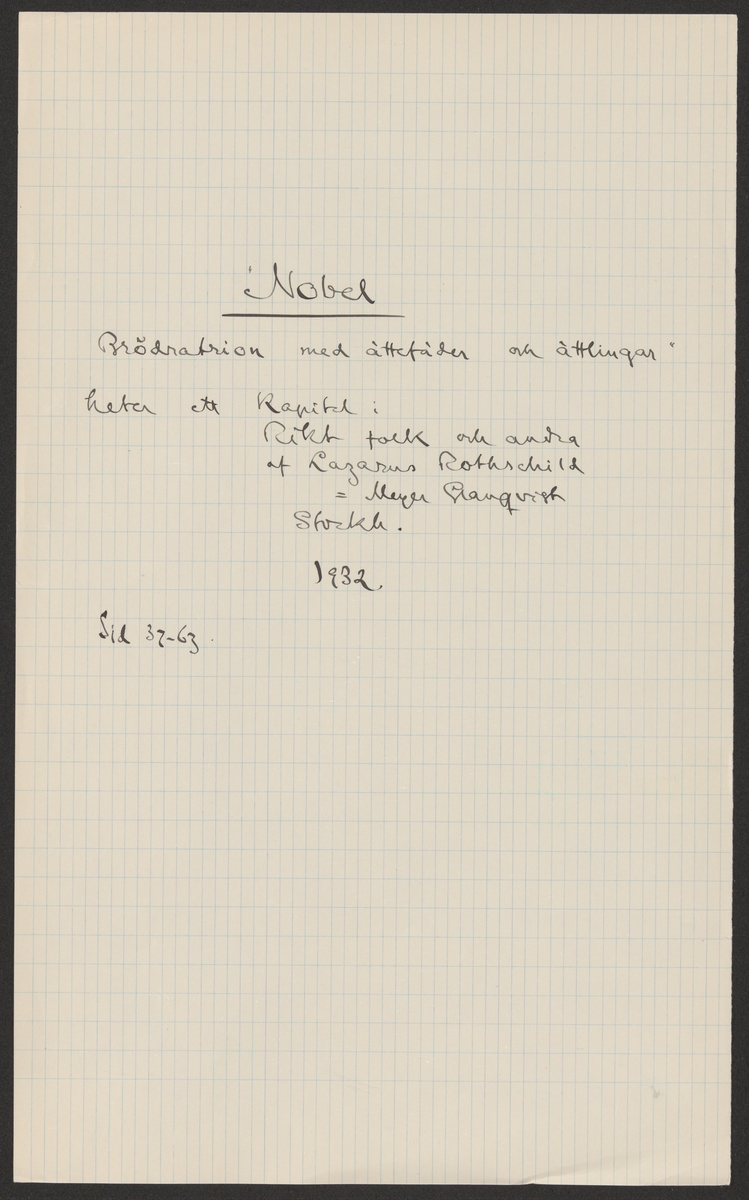 "Nobel
Brödratrion med ättefäder och ättlingar"
heter ett Kapitel i
Rikt folk och andra
af Lazarus Rothschild
= Meyer Granqvist
Stockh.
1932
Sid 37-63.